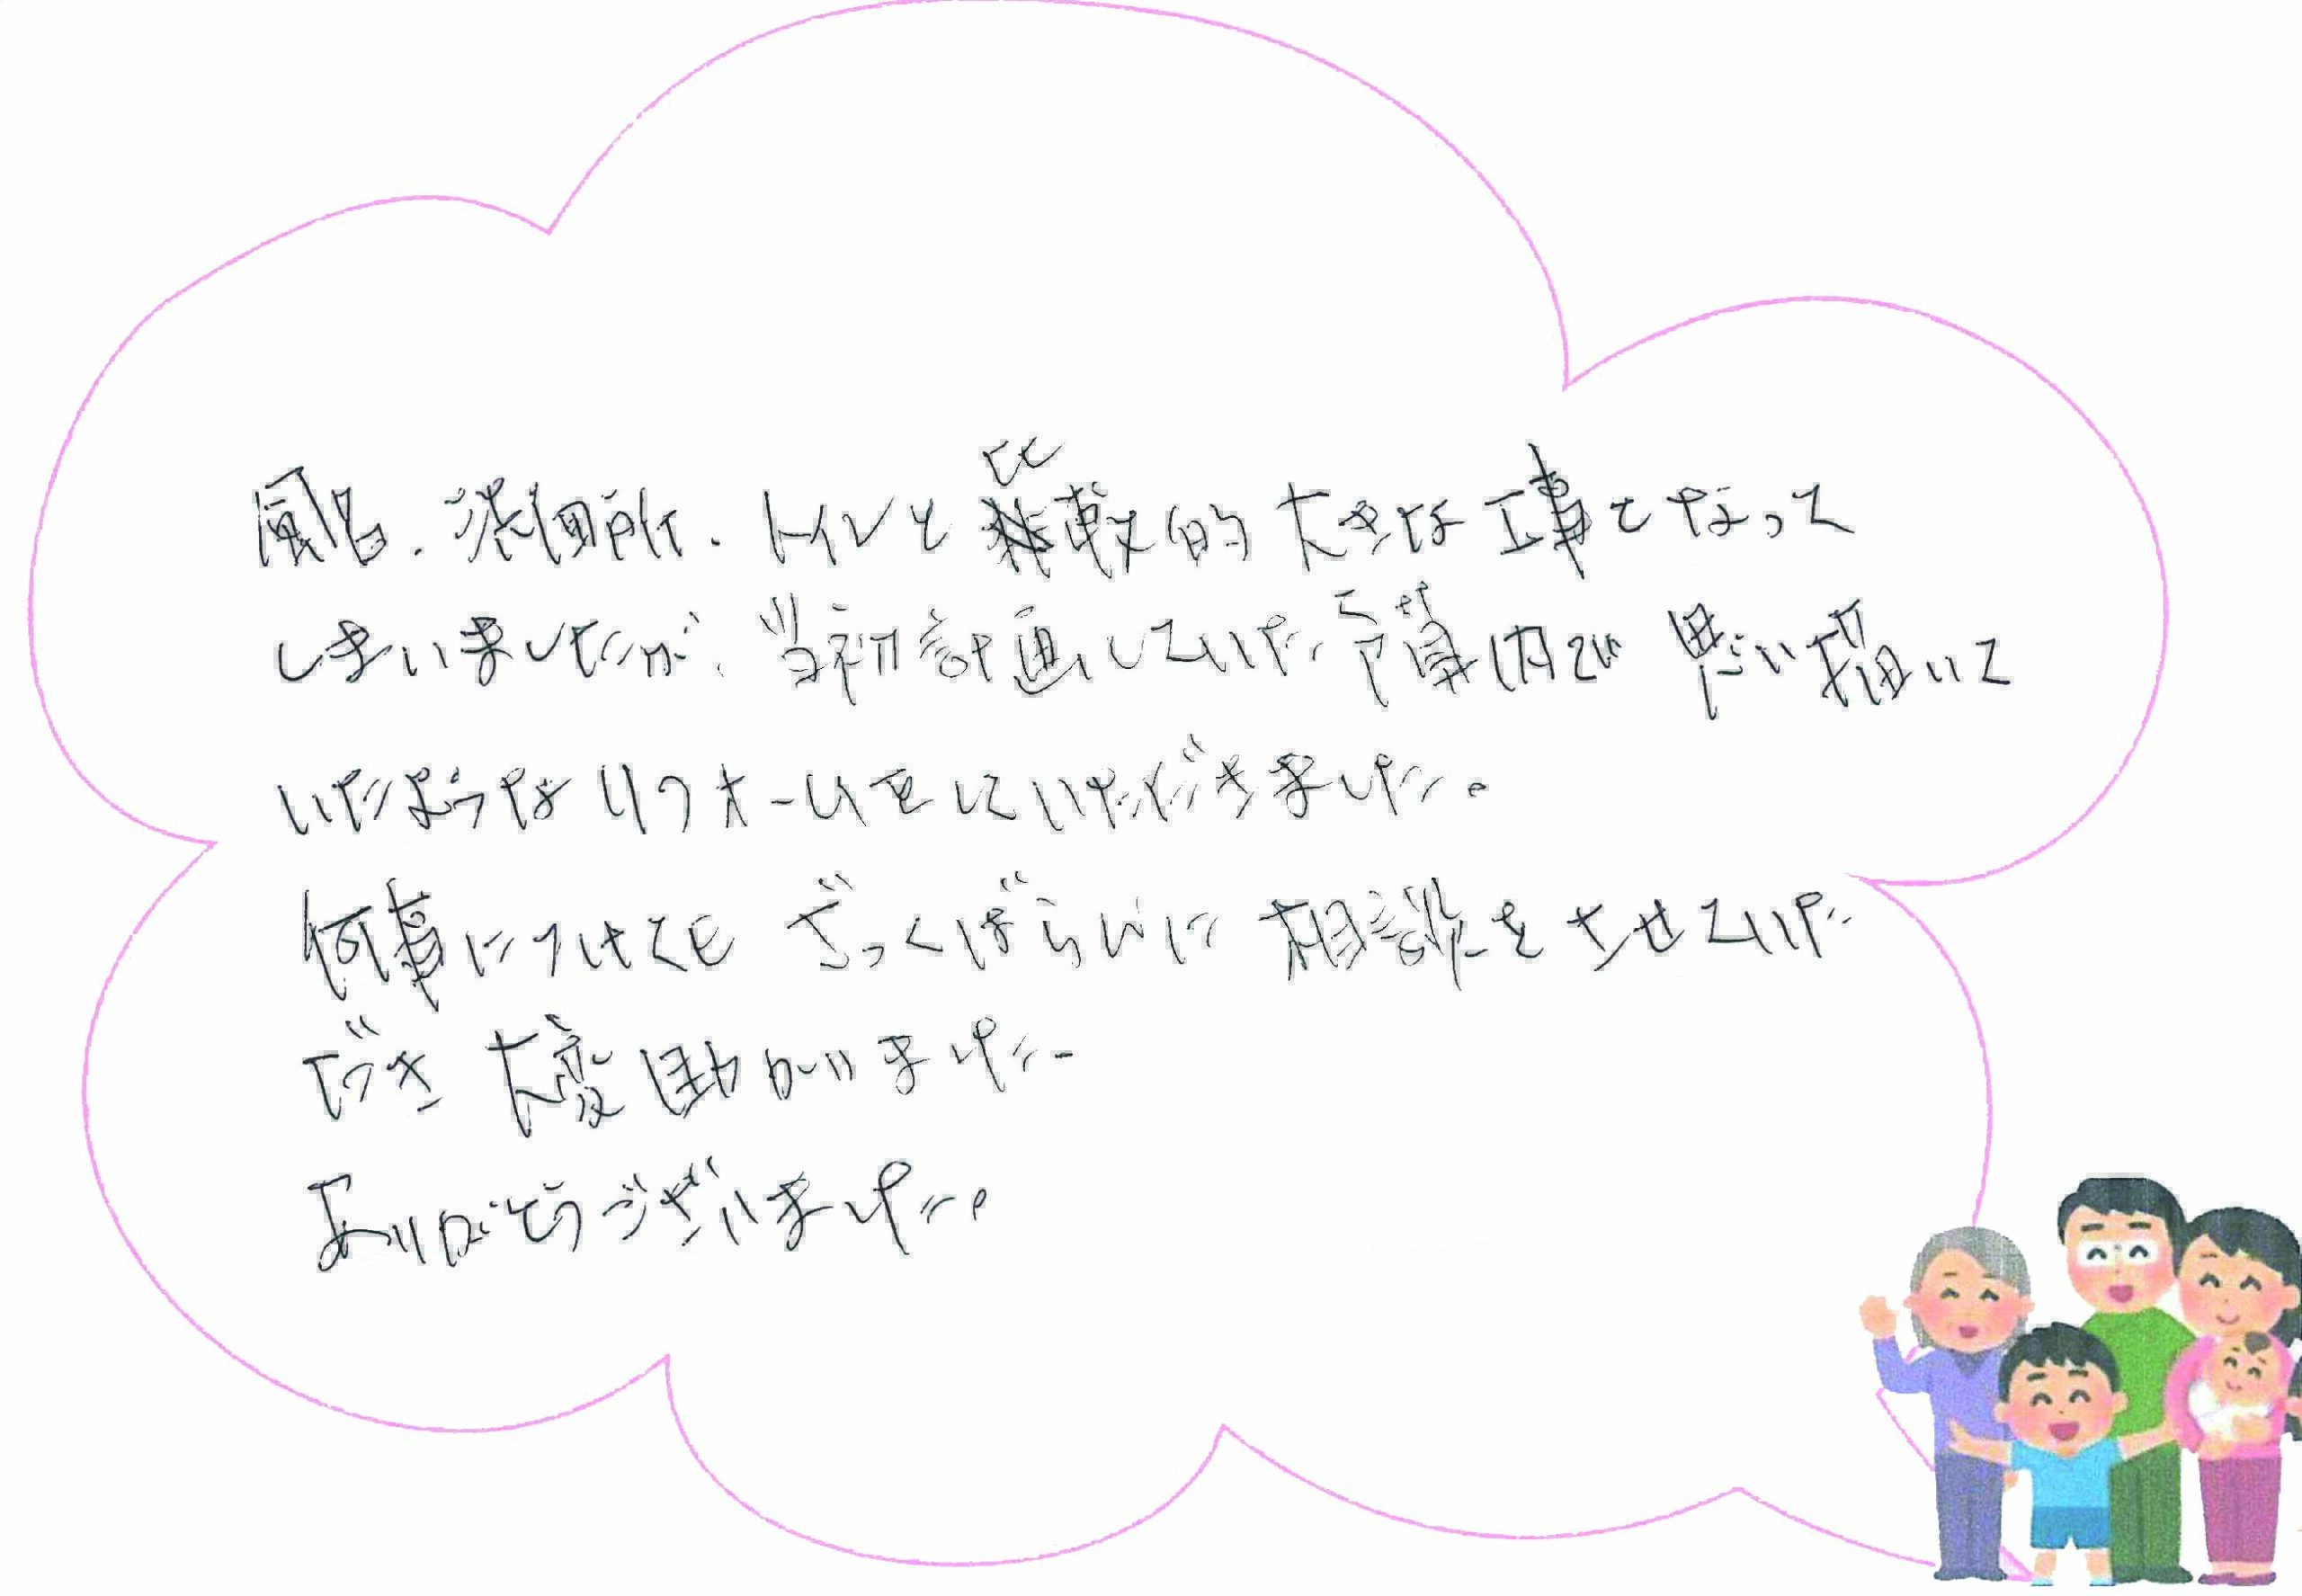 風呂、洗面所、トイレと比較的大きな工事となって
しまいましたが、当初計画していた予算内で思い描いて
いたようなリフォームをしていただきました。
何事につけてもざっくばらんに相談をさせていた
だき大変助かりました。
ありがとうございました。